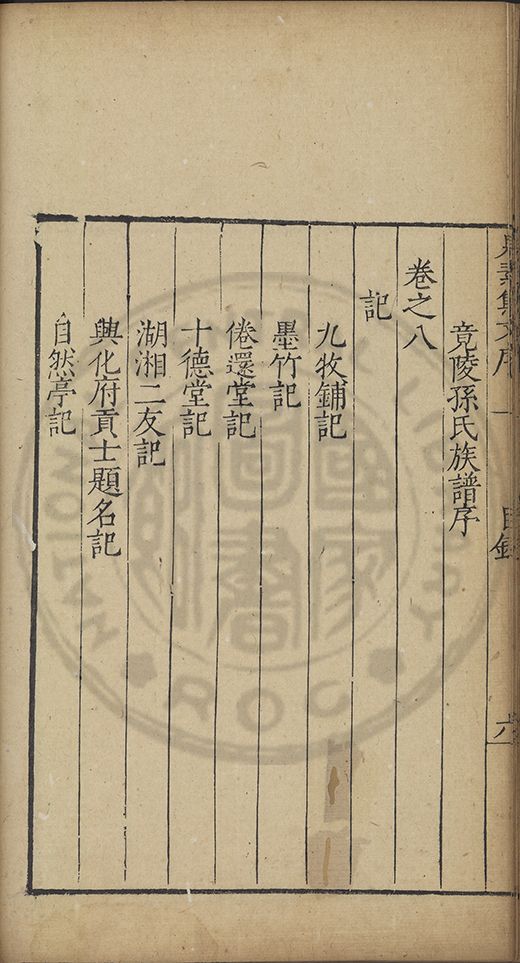 竟陵孫氏族譜序
卷之八
記
九牧鋪記
墨竹記
倦還堂記
十德堂記
湖湘二友記
興化府貢士題名記
自然亭記
素集文序
目錄
六
國家圖書館